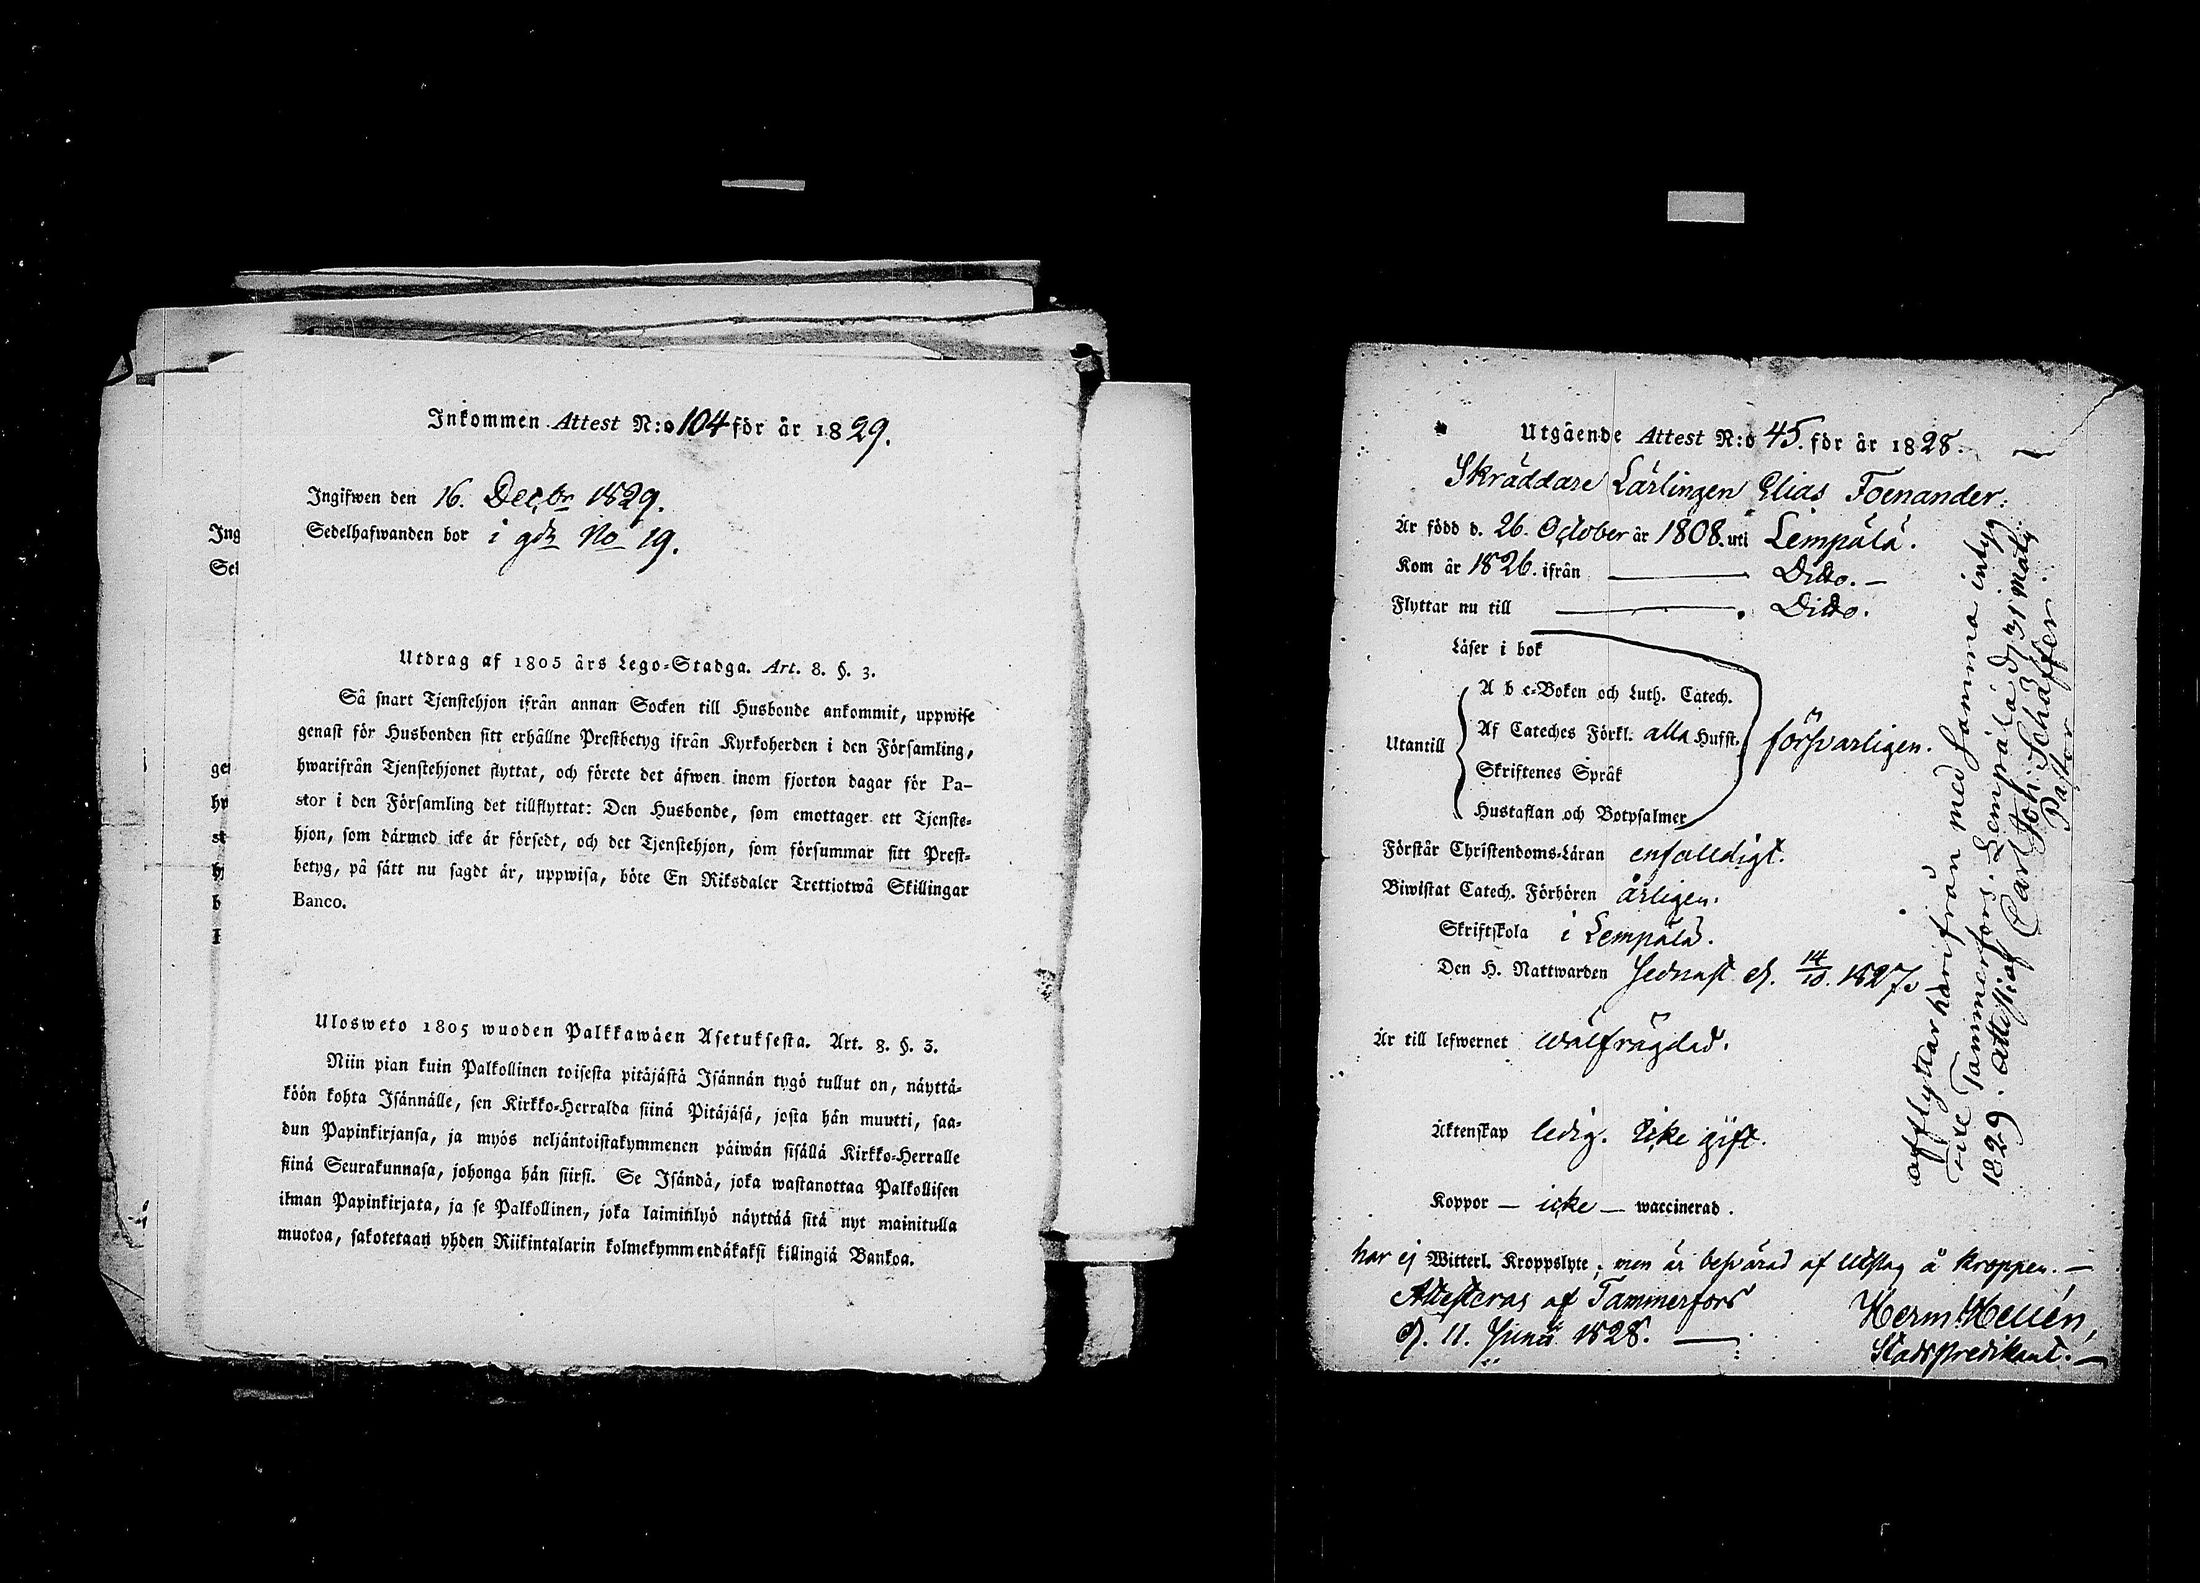 Inkommen Attest N:o 104 för år 1829.
Ingifwen den 16. Decbr 1829.
Sedelhafwanden bor i gdn No 19.
Ing
Sel
Utdrag af 1805 års Lego-Stadga. Art. 8. §. 3.
Så snart Tjenstehjon ifrån annan Socken till Husbonde ankommit, uppwise
genast för Husbonden sitt erhållne Prestbetyg ifrån Kyrkoherden i den Församling,
hwarifrån Tjenstehjonet flyttat, och förete det äfwen inom fjorton dagar för Pa-
stor i den Församling det tillflyttat: Den Husbonde, som emottager ett Tjenste-
hjon, som därmed icke är försedt, och det Tjenstehjon, som försummar sitt Prest-
betyg, på sätt nu sagdt är, uppwisa, böte En Riksdaler Trettiotwå Skillingar
Banco.
ge
hv
st
hj
b
Ulosweto 1805 wuoden Palkkawäen Asetuksesta. Art. 8. §. 3.
Niin pian kuin Palkollinen toisesta pitäjästä Isännän tygö tullut on, näyttä-
köön kohta Isännälle, sen Kirkko-Herralda siinä Pitäjäsä, josta hän muutti, saa-
dun Papinkirjansa, ja myös neljäntoistakymmenen päiwän sisällä Kirkko-Herralle
siinä Seurakunnasa, johonga hän siirsi. Se Isändä, joka wastanottaa Palkollisen
ilman Papinkirjata, ja se Palkollinen, joka laiminlyö näyttää sitä nyt mainitulla
muotoa, sakotetaan yhden Riikintalarin kolmekymmendäkaksi killingiä Bankoa.
Utgående Attest N:o 45. för år 1828.
Skräddare Lärlingen Elias Foenander.
Är född d. 26. October år 1808. uti Lempälä.
Kom år 1826. ifrån — Ditto. —
Flyttar nu till — Ditto.
Läser i bok
Utantill
A b c-Boken och Luth. Catech.
Af Cateches Förkl. alla Hufst.
Skriftenes Språk
Hustaflan och Botpsalmer
försvarligen.
Förstår Christendoms-Läran enfalldigt.
Biwistat Catech. Förhören årligen.
Skriftskola i Lempälä.
Den H. Nattwarden sednast d. 14/10. 1827.
Är till lefwernet wälfrägdad.
Äktenskap ledig. icke gift.
Koppor — icke — waccinerad.
har ej Witterl. Kroppslyte; men är besvärad af utslag å kroppen. —
Attesteras af Tammerfors
d. 11. Junii 1828. —
Herm. Hellén,
Stadspredikant. —
afflyttar härifrån med samma intyg
till Tammerfors. Lempälä d. 31 Maij
1829. attest: af Carl Joh: Schäffer.
Pastor